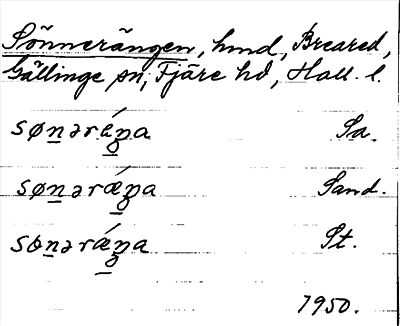 Sönnerängen, hmd, Breared,
Gällinge sn, Fjäre hd, Hall. l.
søn̲ərǽŋ̲a Sa.
søn̲ərǽŋ̲a Sand.
søn̲ərǽŋ̲a St.
1950.